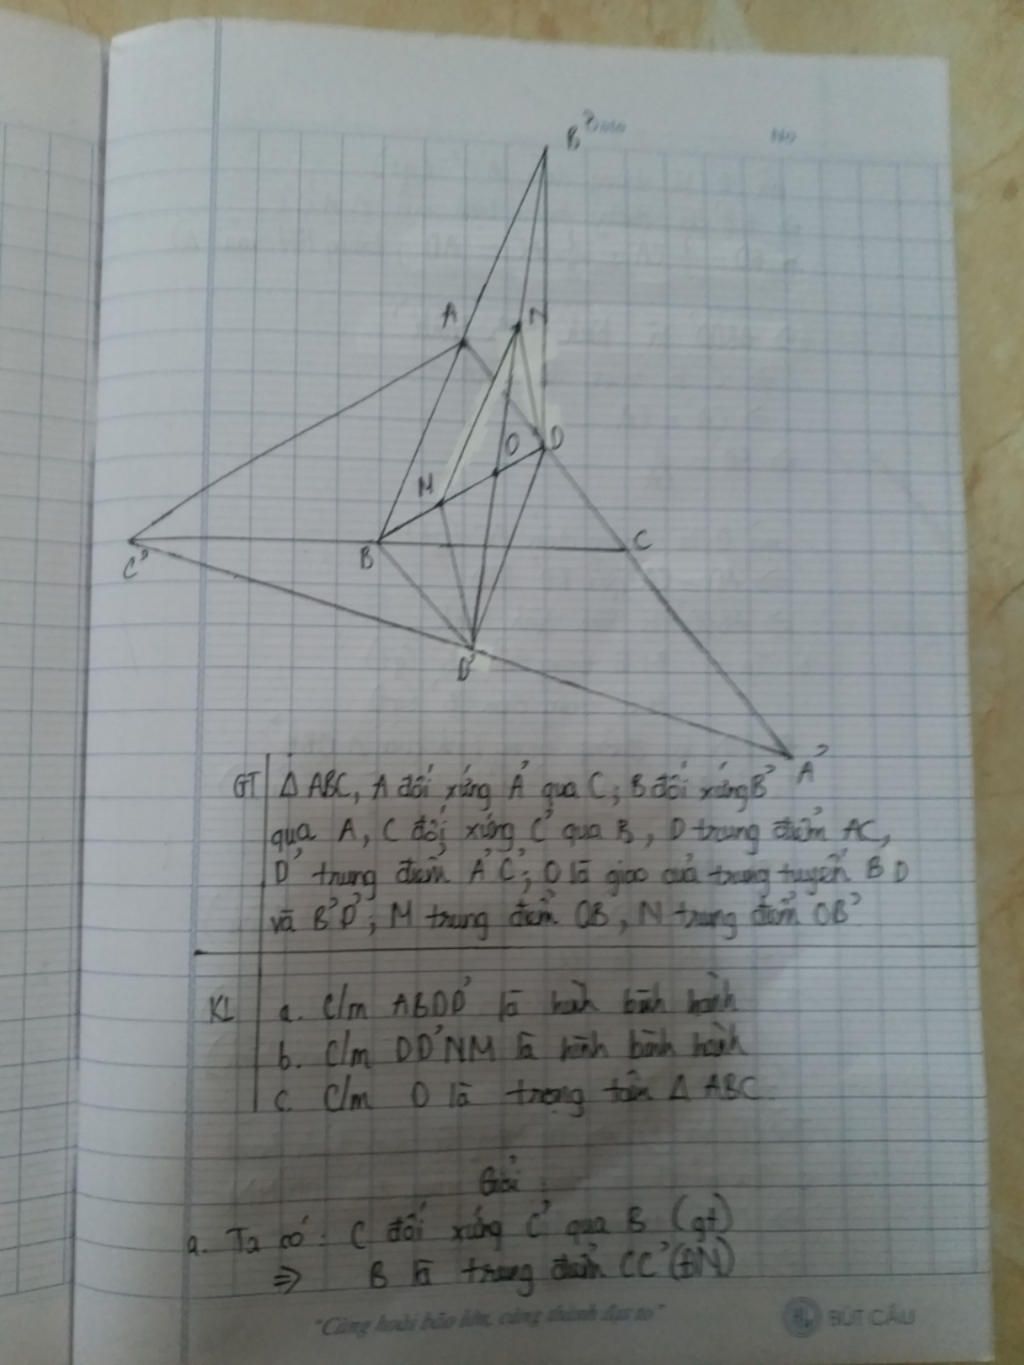 B'
A
N
O
D
M
C'
B
C
D'
A'
GT ∆ ABC, A đối xứng A' qua C; B đối xứng B'
qua A, C đối xứng C' qua B, D trung điểm AC,
D' trung điểm A'C'; O là giao của trung tuyến BD
và B'D'; M trung điểm OB, N trung điểm OB'
KL a. C/m ABDD' là hình bình hành
b. C/m DD'NM là hình bình hành
c. C/m O là trọng tâm ∆ ABC
Giải
a. Ta có: C đối xứng C' qua B (gt)
⇒ B là trung điểm CC' (ĐN)
"Càng hoài bão lớn, càng thành đạt to"
BÚT CÂU